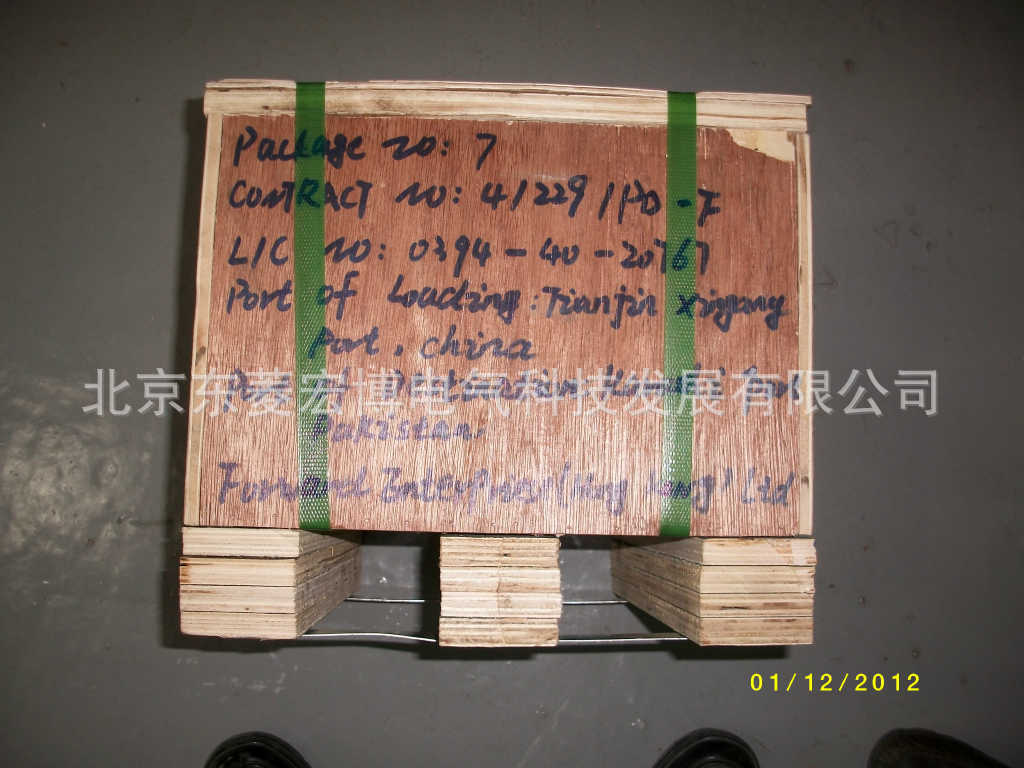 Package no: 7
CONTRACT no: 41229/PD-F
L/C no: 0394-40-20767
Port of Loading: Tianjin Xingang
Port, China
北京东菱宏博电气科技发展有限公司
Port of Destination: Karachi
Pakistan.
Forward Enterprises (Hong Kong) Ltd
01/12/2012